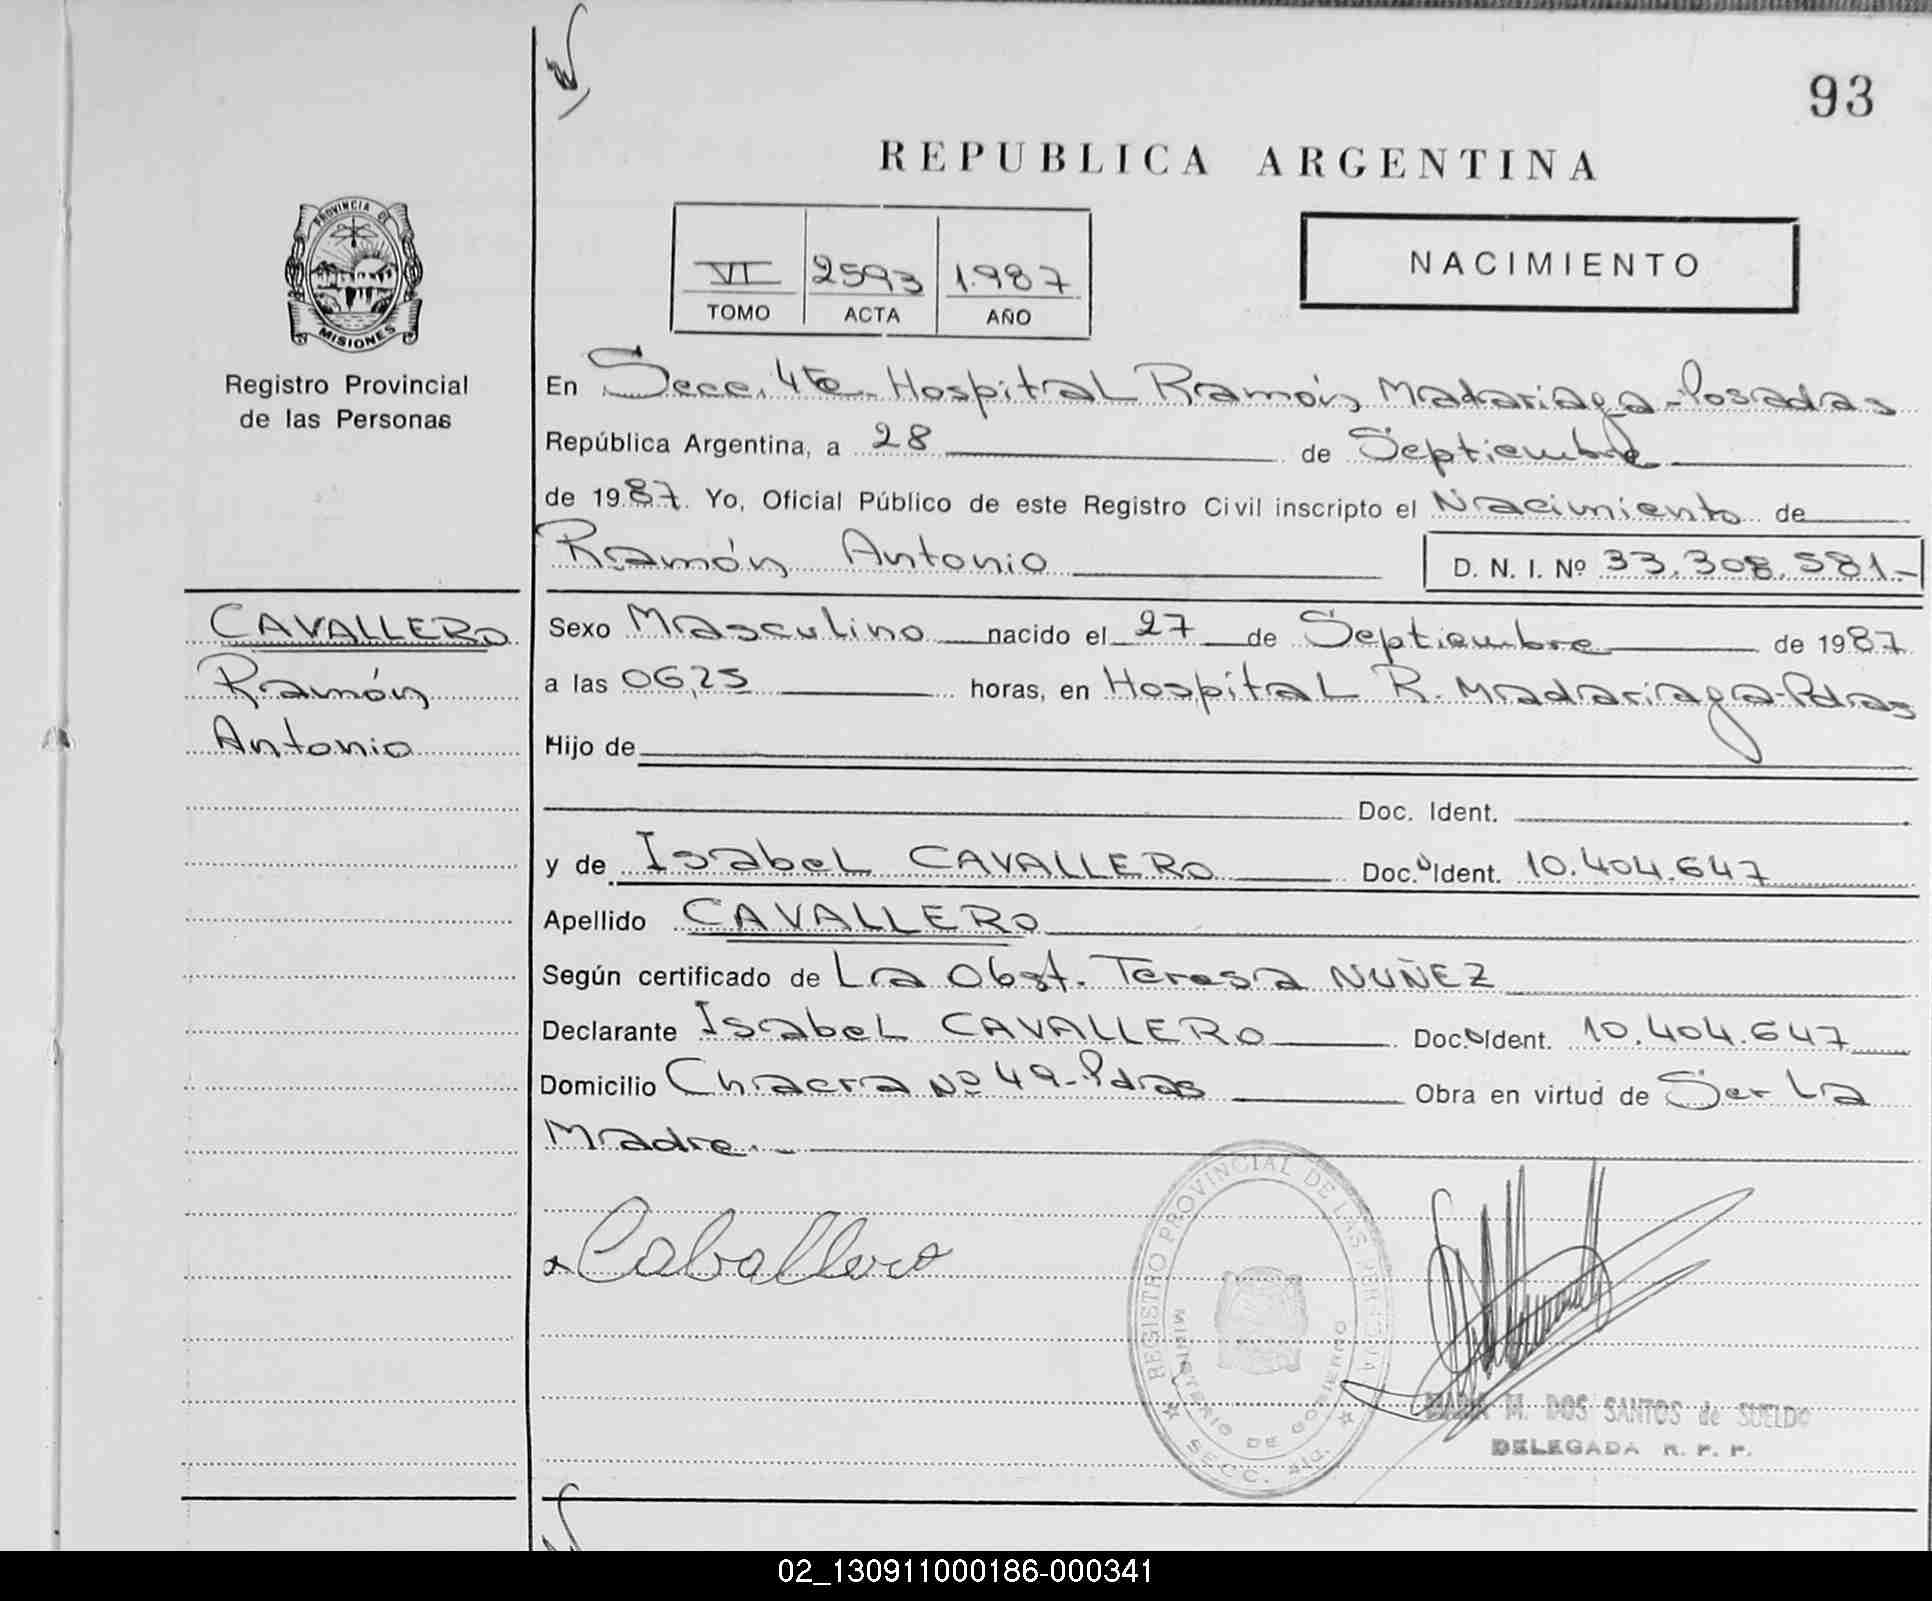 93
REPUBLICA ARGENTINA
PROVINCIA DE
MISIONES
Registro Provincial
de las Personas
VI 2593 1.987
TOMO ACTA AÑO
NACIMIENTO
En Secc. 4ta. Hospital Ramón Madariaga-Posadas
República Argentina, a 28 de Septiembre
de 1987. Yo, Oficial Público de este Registro Civil inscripto el Nacimiento de
Ramón Antonio D. N. I. Nº 33.308.581-
CAVALLERO
Ramón
Antonio
Sexo Masculino nacido el 27 de Septiembre de 1987
a las 06,25 horas, en Hospital R. Madariaga-Pdas
Hijo de
Doc. Ident.
y de Isabel CAVALLERO Doc. Ident. 10.404.647
Apellido CAVALLERO
Según certificado de La Obst. Teresa NUÑEZ
Declarante Isabel CAVALLERO Doc. Ident. 10.404.647
Domicilio Chacra Nº 49-Pdas Obra en virtud de Ser La
Madre.-
Caballero
REGISTRO PROVINCIAL DE LAS PERSONAS
MINISTERIO DE GOBIERNO
SECC. 4ta.
MARIA M. DOS SANTOS de SUELDO
DELEGADA R. P. P.
02_130911000186-000341